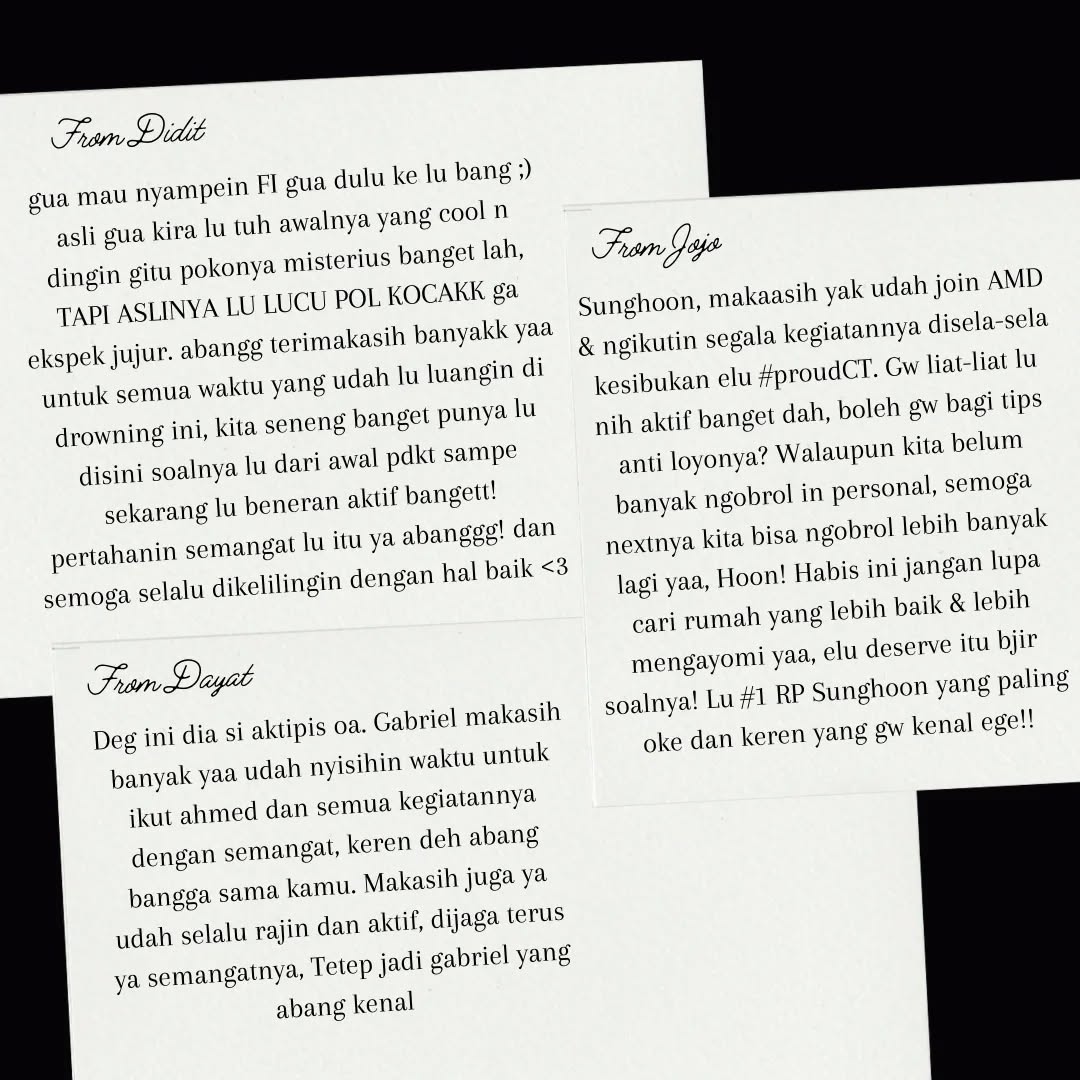 From Didit
gua mau nyampein FI gua dulu ke lu bang ;)
asli gua kira lu tuh awalnya yang cool n
dingin gitu pokonya misterius banget lah,
TAPI ASLINYA LU LUCU POL KOCAKK ga
ekspek jujur. abangg terimakasih banyakk yaa
untuk semua waktu yang udah lu luangin di
drowning ini, kita seneng banget punya lu
disini soalnya lu dari awal pdkt sampe
sekarang lu beneran aktif bangett!
pertahanin semangat lu itu ya abanggg! dan
semoga selalu dikelilingin dengan hal baik <3
From Jojo
Sunghoon, makaasih yak udah join AMD
& ngikutin segala kegiatannya disela-sela
kesibukan elu #proudCT. Gw liat-liat lu
nih aktif banget dah, boleh gw bagi tips
anti loyonya? Walaupun kita belum
banyak ngobrol in personal, semoga
nextnya kita bisa ngobrol lebih banyak
lagi yaa, Hoon! Habis ini jangan lupa
cari rumah yang lebih baik & lebih
mengayomi yaa, elu deserve itu bjir
soalnya! Lu #1 RP Sunghoon yang paling
oke dan keren yang gw kenal ege!!
From Dayat
Deg ini dia si aktipis oa. Gabriel makasih
banyak yaa udah nyisihin waktu untuk
ikut ahmed dan semua kegiatannya
dengan semangat, keren deh abang
bangga sama kamu. Makasih juga ya
udah selalu rajin dan aktif, dijaga terus
ya semangatnya, Tetep jadi gabriel yang
abang kenal